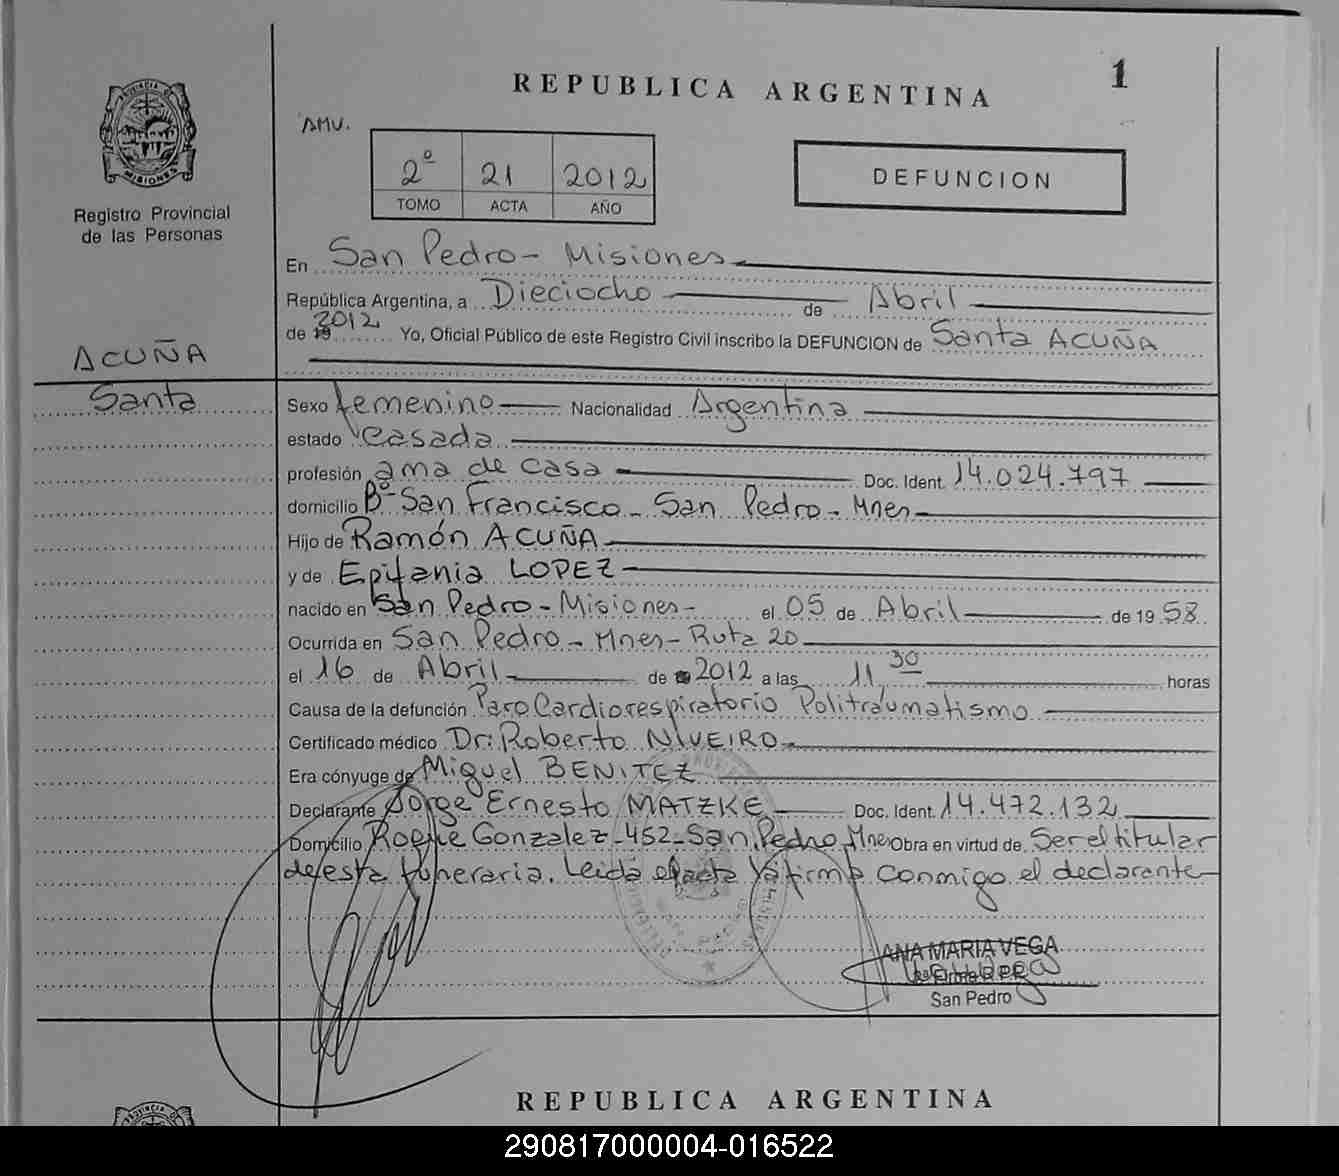 1
REPUBLICA ARGENTINA
AMV.
2º 21 2012
TOMO ACTA AÑO
DEFUNCION
PROVINCIA DE
MISIONES
Registro Provincial
de las Personas
En San Pedro - Misiones
República Argentina, a Dieciocho de Abril
de 2012 Yo, Oficial Público de este Registro Civil inscribo la DEFUNCION de Santa ACUÑA
ACUÑA
Santa
Sexo femenino Nacionalidad Argentina
estado casada
profesión ama de casa Doc. Ident. 14.024.797
domicilio Bº San Francisco - San Pedro - Mnes
Hijo de Ramón ACUÑA
y de Epifania LOPEZ
nacido en San Pedro - Misiones - el 05 de Abril de 1958
Ocurrida en San Pedro - Mnes - Ruta 20
el 16 de Abril de 2012 a las 11 30 horas
Causa de la defunción Paro Cardiorespiratorio Politraumatismo
Certificado médico Dr: Roberto NIVEIRO
Era cónyuge de Miguel BENITEZ
Declarante Jorge Ernesto MATZKE Doc. Ident. 14.472.132
Domicilio Roque Gonzalez - 452 - San Pedro Mnes Obra en virtud de Ser el titular
de esta funeraria. Leida el acta la firma conmigo el declarante
ANA MARIA VEGA
San Pedro
REPUBLICA ARGENTINA
290817000004-016522